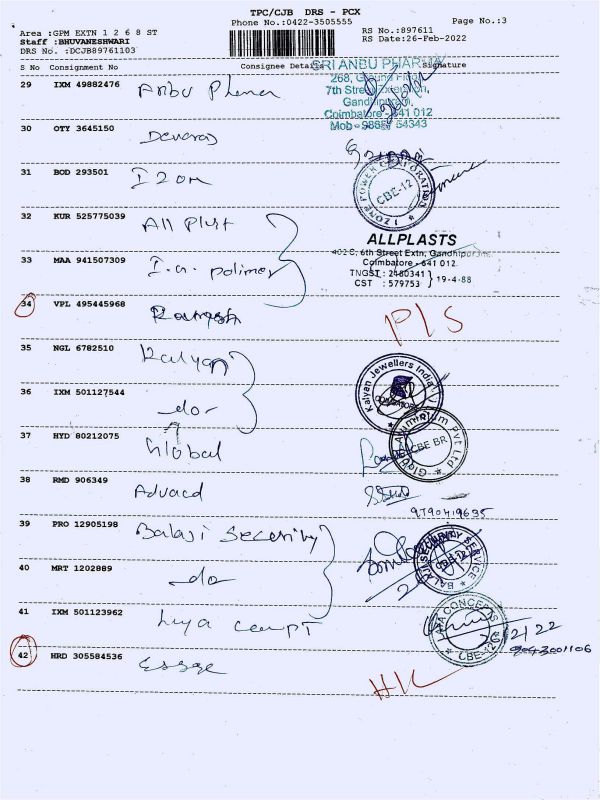 TPC/CJB DRS - PCX
Phone No.:0422-3505555
Page No.:3
Area :GPM EXTN 1 2 6 8 ST
RS No.:897611
Staff :BHUVANESHWARI
RS Date:26-Feb-2022
DRS No. :DCJB89761103
S No Consignment No Consignee Details Signature
SRI ANBU PHARMA
268, Ground Floor
7th Street Extension,
Gandhipuram,
Coimbatore - 641 012
29 IXM 49882476 Anbu Pharma
30 OTY 3645150 Devaraj
31 BOD 293501 I Zon
I ZONE POWER CORPORATION
CBE-12
32 KUR 525775039 All Plast
ALLPLASTS
402 C, 6th Street Extn, Gandhipuram,
Coimbatore - 641 012.
TNGST : 2480341
CST : 579753
19-4-88
33 MAA 941507309 I.a. polimer
34 VPL 495445968 Ramesh
P/S
35 NGL 6782510 Kalyan
Kalyan Jewellers India
36 IXM 501127544 do
37 HYD 80212075 Global
Pvt Ltd
CBE BR
38 RMD 906349 Advacd
9790419695
39 PRO 12905198 Balaji Security
BALAJI SECURITY SERVICE
40 MRT 1202889 do
41 IXM 501123962
CONCEPTS
CBE-12
26/2/22
9043001106
42 HRD 305584536